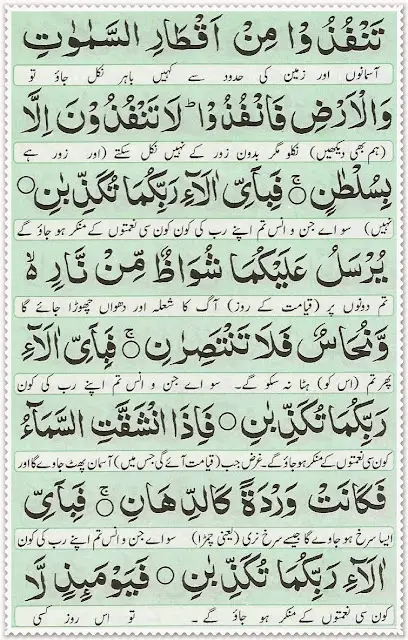 تَنْفُذُوْا مِنْ اَقْطَارِ السَّمٰوٰتِ
آسمانوں اور زمین کی حدود سے کہیں باہر نکل جاؤ تو
وَالْاَرْضِ فَانْفُذُوْا ؕ لَا تَنْفُذُوْنَ اِلَّا
(ہم بھی دیکھیں) نکلو مگر بدون زور کے نہیں نکل سکتے (اور زور ہے
بِسُلْطٰنٍ ۚ۝ فَبِاَيِّ اٰلَآءِ رَبِّكُمَا تُكَذِّبٰنِ ۝
نہیں) سو اے جن و انس تم اپنے رب کی کون کون سی نعمتوں کے منکر ہو جاؤ گے
يُرْسَلُ عَلَيْكُمَا شُوَاظٌ مِّنْ نَّارٍ ۙ
تم دونوں پر (قیامت کے روز) آگ کا شعلہ اور دھواں چھوڑا جائے گا
وَّنُحَاسٌ فَلَا تَنْتَصِرٰنِ ۚ۝ فَبِاَيِّ اٰلَآءِ
پھر تم (اس کو) ہٹا نہ سکو گے۔ سو اے جن و انس تم اپنے رب کی کون
رَبِّكُمَا تُكَذِّبٰنِ ۝ فَاِذَا انْشَقَّتِ السَّمَآءُ
کون سی نعمتوں کے منکر ہو جاؤ گے۔ غرض جب (قیامت آئے گی جس میں) آسمان پھٹ جاوے گا اور
فَكَانَتْ وَرْدَةً كَالدِّهَانِ ۚ۝ فَبِاَيِّ
ایسا سرخ ہو جاوے گا جیسے سرخ نری (یعنی چمڑا) سو اے جن و انس تم اپنے رب کی کون
اٰلَآءِ رَبِّكُمَا تُكَذِّبٰنِ ۝ فَيَوْمَئِذٍ لَّا
کون سی نعمتوں کے منکر ہو جاؤ گے ۔ تو اس روز کسی